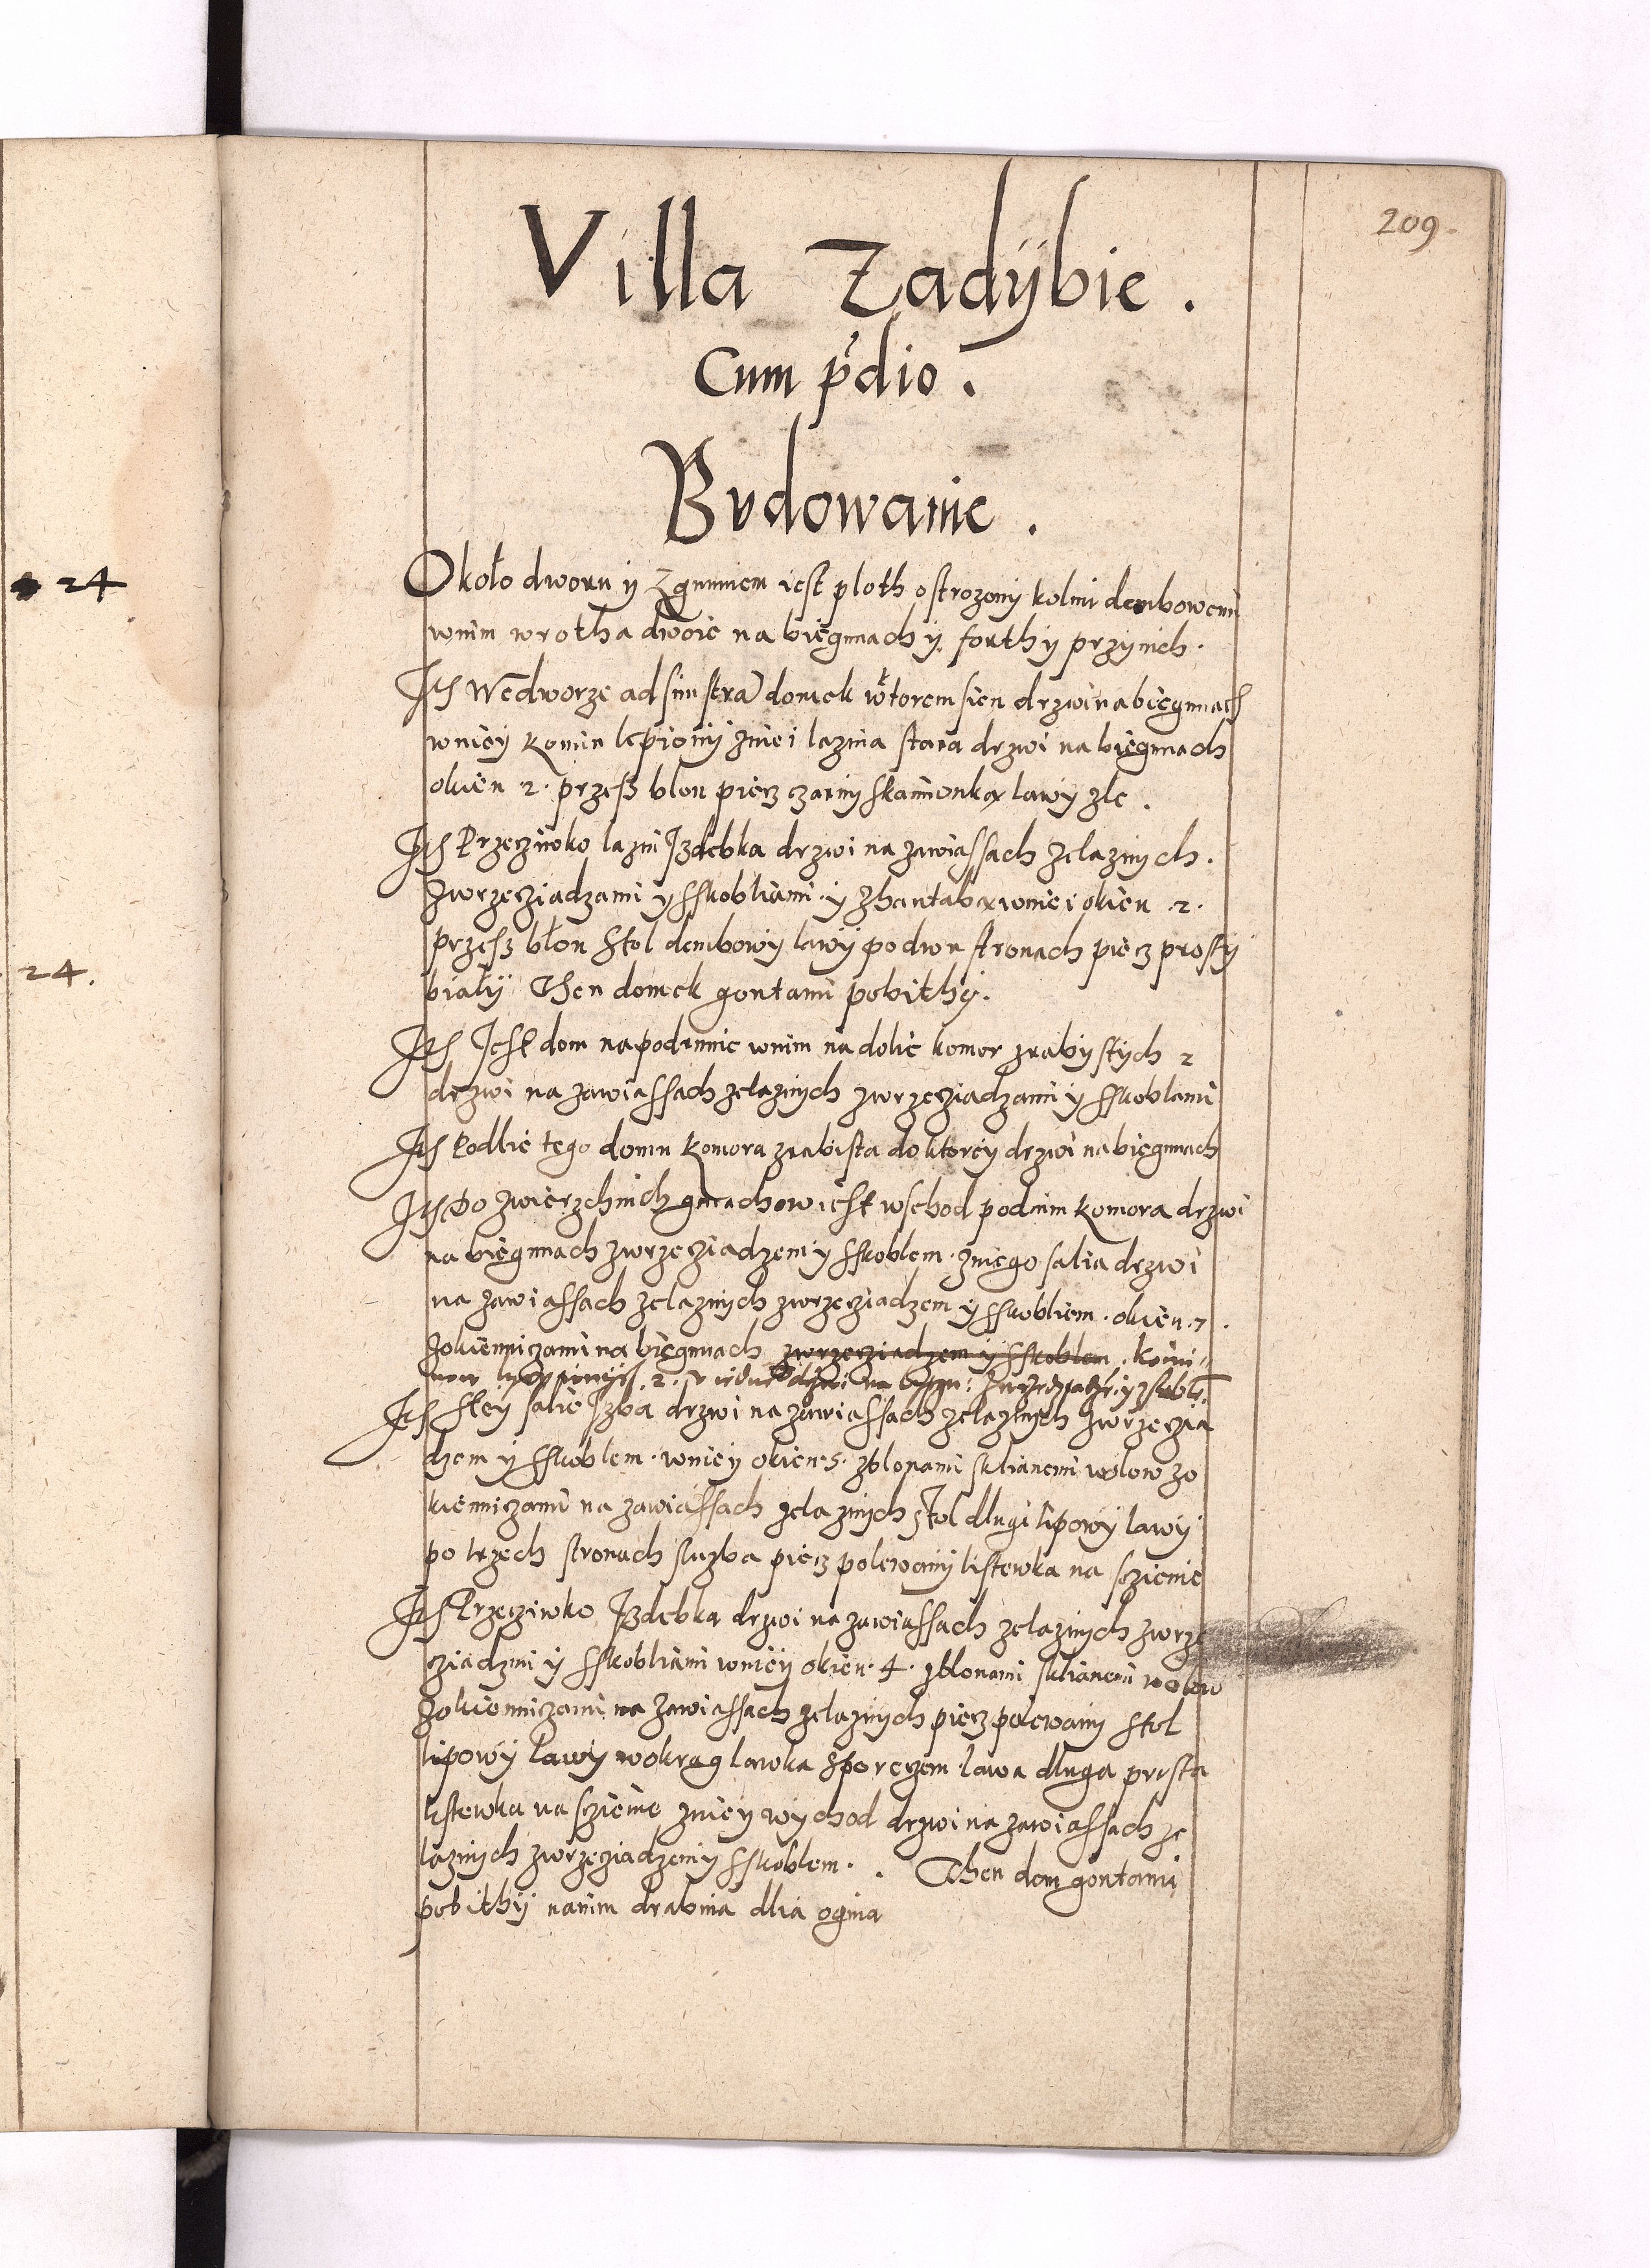 209.
Villa Zadÿbie.
Cum p̃dio.
Bvdowanie.
24
24.
Około dworu ÿ Zgumnem iest ploth ostrozonÿ kolmi dembowemi
wnim wrotha dwoie na biegunach ÿ forthÿ przÿnich.
Itẽ Wedworze ad sinistrã domek wktorem sien drzwi na biegunach
wnieÿ komin lepionÿ zniei laznia stara drzwi na biegunach
okien 2. przesz blon piecz czarnÿ skamionka lawÿ zle.
Itẽ Przeciwko lazni Izdebka drzwi na zawiassach zelaznÿch.
zwrzecziadzami ÿ sskobliami ÿ zhantaba wniei okien .2.
przesz błon stol dembowÿ lawÿ podwu stronach piecz prostÿ
białÿ Then domek gontami pobithÿ.
Itẽ Iest dom napodemnie wnim nadolie komor zrabistÿch 2
drzwi na zawiassach zelaznÿch zwrzecziadzami ÿ sskoblami
Itẽ Podlie tego domu komora zrabista do ktoreÿ drzwi na biegunach
Itẽ Do zwierzchnich gmachow iest wschod podnim komora drzwi
na biegunach zwrzecziadzem ÿ sskoblem. zniego salia drzwi
na zawiassach zelaznÿch zwrzecziadzem ÿ sskobliem. okien .7.
zokienniczami na biegunach zwrzecziadzem ÿ sskoblem. komi=
now lepionÿch .2.
Itẽ steÿ salie Izba drzwi na zawiassach zelaznÿch zwrzeczia
dzem ÿ sskoblem. wnieÿ okien .5. zblonami sklianemi wolow zo
kienniczami na zawiassach zelaznÿch stol dlugi lipowÿ lawÿ
po trzech stronach sluzba piecz polewanÿ listewka na sczienie
Itẽ Przecziwko Izdebka drzwi na zawiassach zelaznÿch zwrze
cziadzmi ÿ sskobliami wnieÿ okien .4. zblonami sklianemi wolow
zokienniczami na zawiassach zelaznÿch piecz polewanÿ stol
lipowÿ lawÿ wokrag lawka sporeczem lawa dluga prosta
listewka na sczienie znieÿ wÿchod drzwi na zawiassach ze
laznÿch zwrzecziadzem ÿ sskoblem. . Then dom gontami
pobithÿ nanim drabina dlia ognia